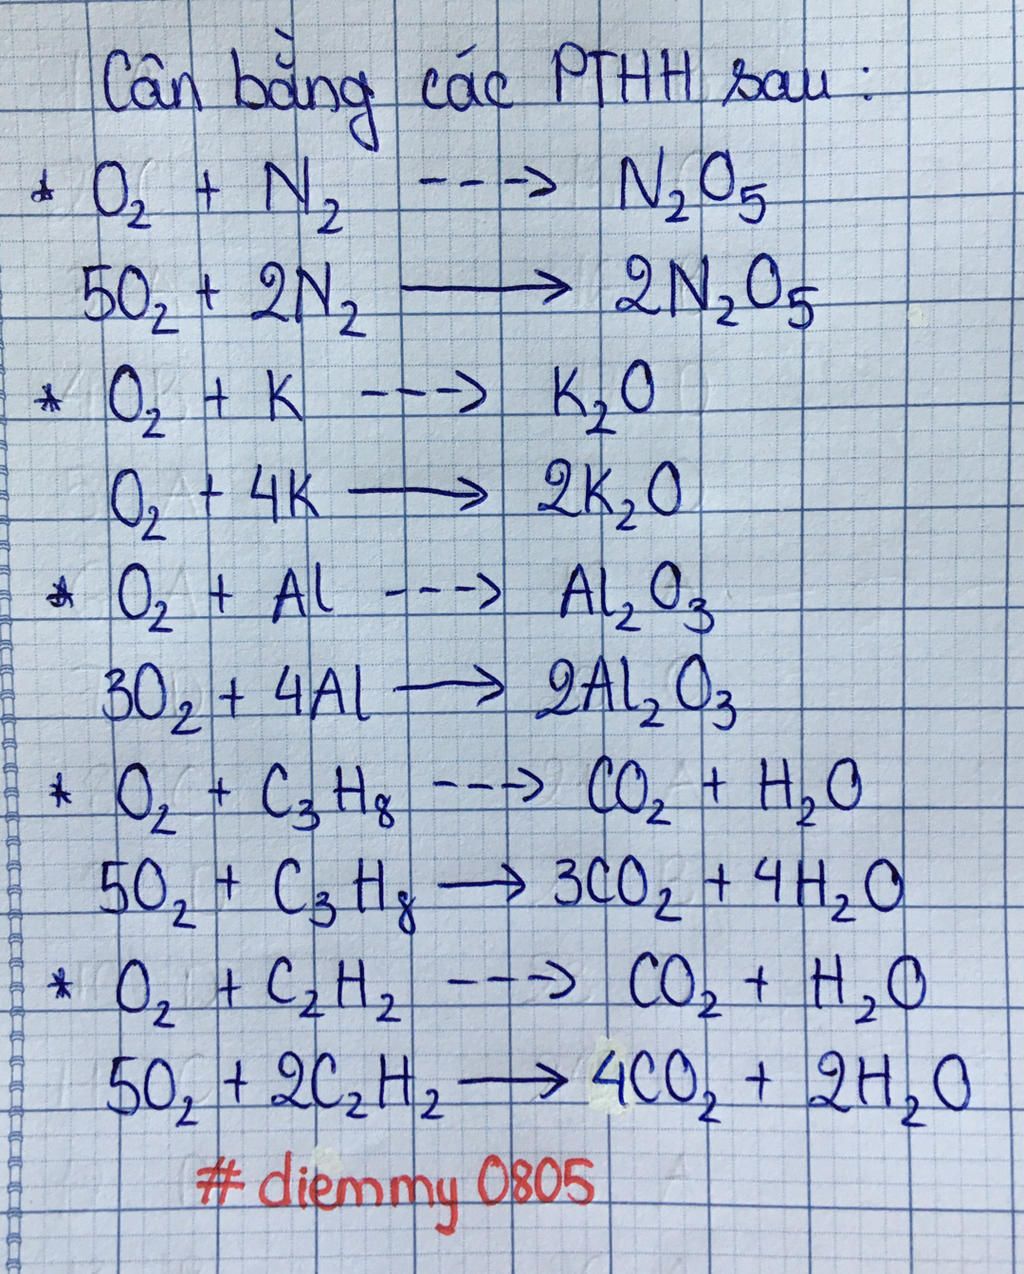 Cân bằng các PTHH sau:
* O₂ + N₂ ---> N₂O₅
5O₂ + 2N₂ ⟶ 2N₂O₅
* O₂ + K ---> K₂O
O₂ + 4K ⟶ 2K₂O
* O₂ + Al ---> Al₂O₃
3O₂ + 4Al ⟶ 2Al₂O₃
* O₂ + C₃H₈ ---> CO₂ + H₂O
5O₂ + C₃H₈ ⟶ 3CO₂ + 4H₂O
* O₂ + C₂H₂ ---> CO₂ + H₂O
5O₂ + 2C₂H₂ ⟶ 4CO₂ + 2H₂O
# diemmy 0805